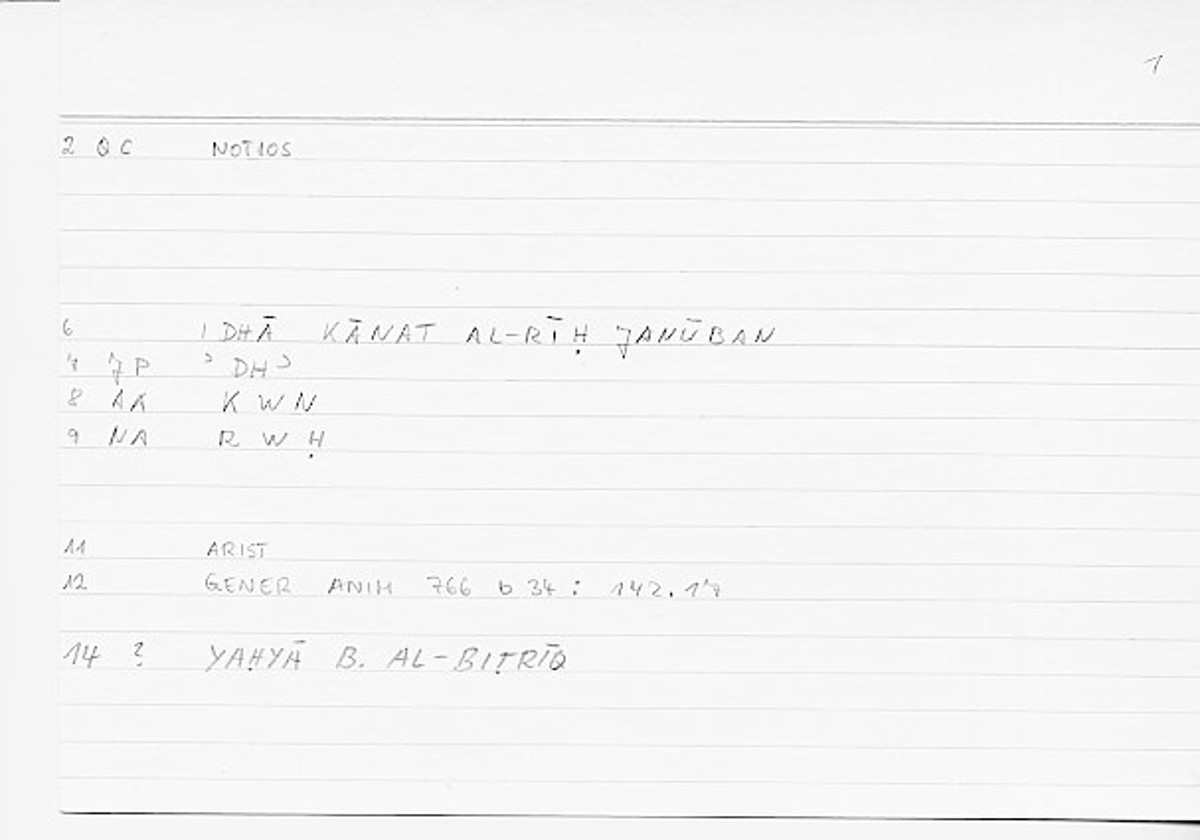 1
2 QC NOTIOS
6 IDHĀ KĀNAT AL-RĪḤ JANŪBAN
7 JP ʾDHʾ
8 AK KWN
9 NA RWḤ
11 ARIST
12 GENER ANIM 766 b 34 : 142.17
14 ? YAḤYĀ B. AL-BIṬRĪQ